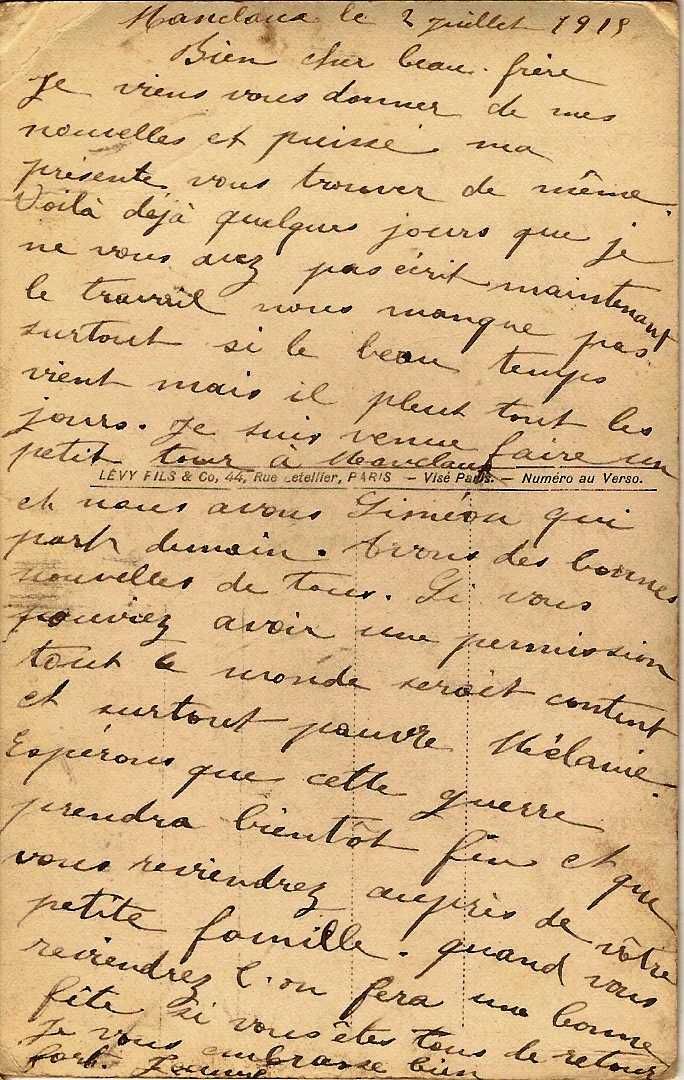 le 2 juillet 1915
Bien cher beau-frère
Je viens vous donner de mes
nouvelles et puisse ma
présente vous trouver de même.
Voilà déjà quelques jours que je
ne vous avez pas écrit maintenant
le travail nous manque pas
surtout si le beau temps
vient mais il pleut tout les
jours. Je suis venue faire un
petit tour à
LÉVY FILS & Co, 44, Rue Letellier, PARIS – Visé Paris. – Numéro au Verso.
et nous avons Siméon qui
part demain. Avons des bonnes
nouvelles de tous. Si vous
pouviez avoir une permission
tout le monde serait content
et surtout pauvre Mélanie.
Espérons que cette guerre
prendra bientôt fin et que
vous reviendrez auprès de vôtre
petite famille. quand vous
reviendrez l'on fera une bonne
fête si vous êtes tous de retour
Je vous embrasse bien
fort.